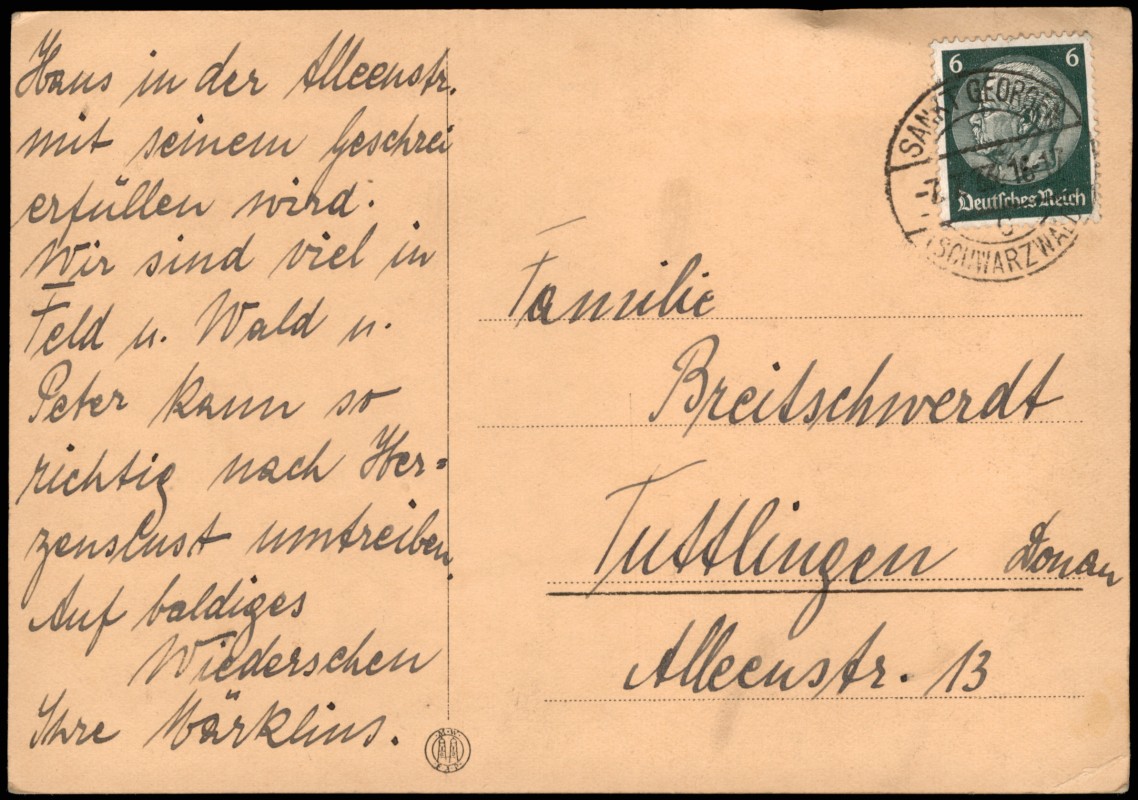 Haus in der Alleenstr.
mit seinem Geschrei
erfüllen wird.
Wir sind viel in
Feld u. Wald u.
Peter kann so
richtig nach Her=
zenslust umtreiben.
Auf baldiges
Wiedersehen
Ihre Märklins.
6 6
Deutsches Reich
SANKT GEORGEN
(SCHWARZWALD)
Familie
Breitschwerdt
Tuttlingen Donau
Alleenstr. 13